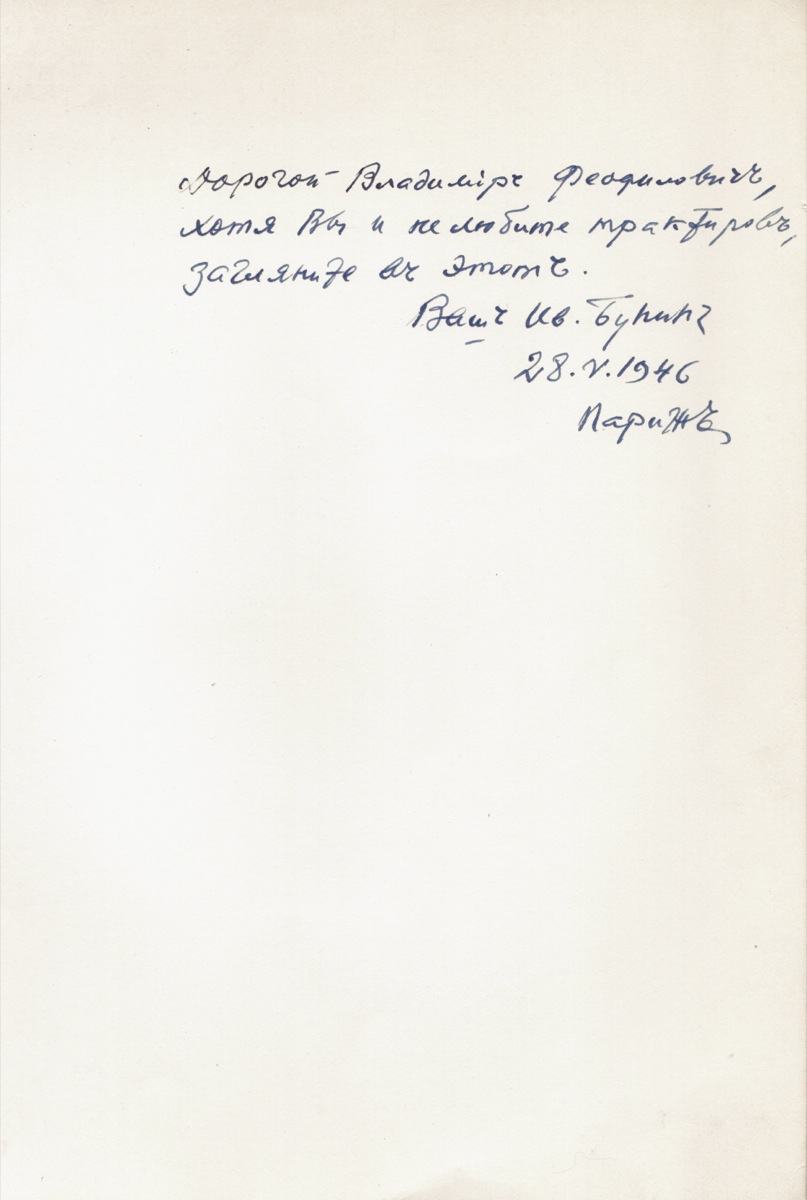 Дорогой Владимiръ Феофиловичъ,
хотя Вы и не любите трактировъ,
загляните въ этотъ.
Вашъ Ив. Бунинъ
28.V.1946
Парижъ